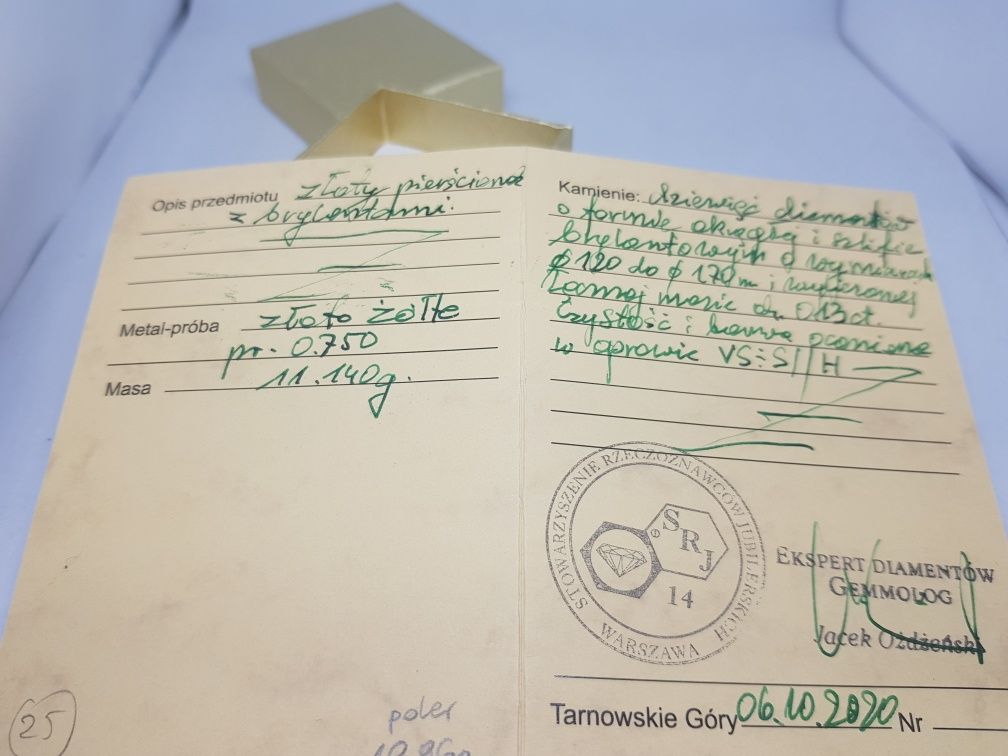 Opis przedmiotu złoty pierścionek
z brylantami.
Metal-próba złoto żółte
pr. 0.750
Masa 11.140g.
25
poler
Kamienie: dziewięć diamentów
o formie okrągłej i szlifie
brylantowym o wymiarach
ϕ 120 do ϕ 170 m i
łącznej masie ok. 0.13 ct.
Czystość i barwa ocenione
w oprawie VS÷SI/H
STOWARZYSZENIE RZECZOZNAWCÓW JUBILERSKICH
WARSZAWA
® SRJ
14
EKSPERT DIAMENTÓW
GEMMOLOG
Jacek Ożdżeński
Tarnowskie Góry 06.10.2020 Nr